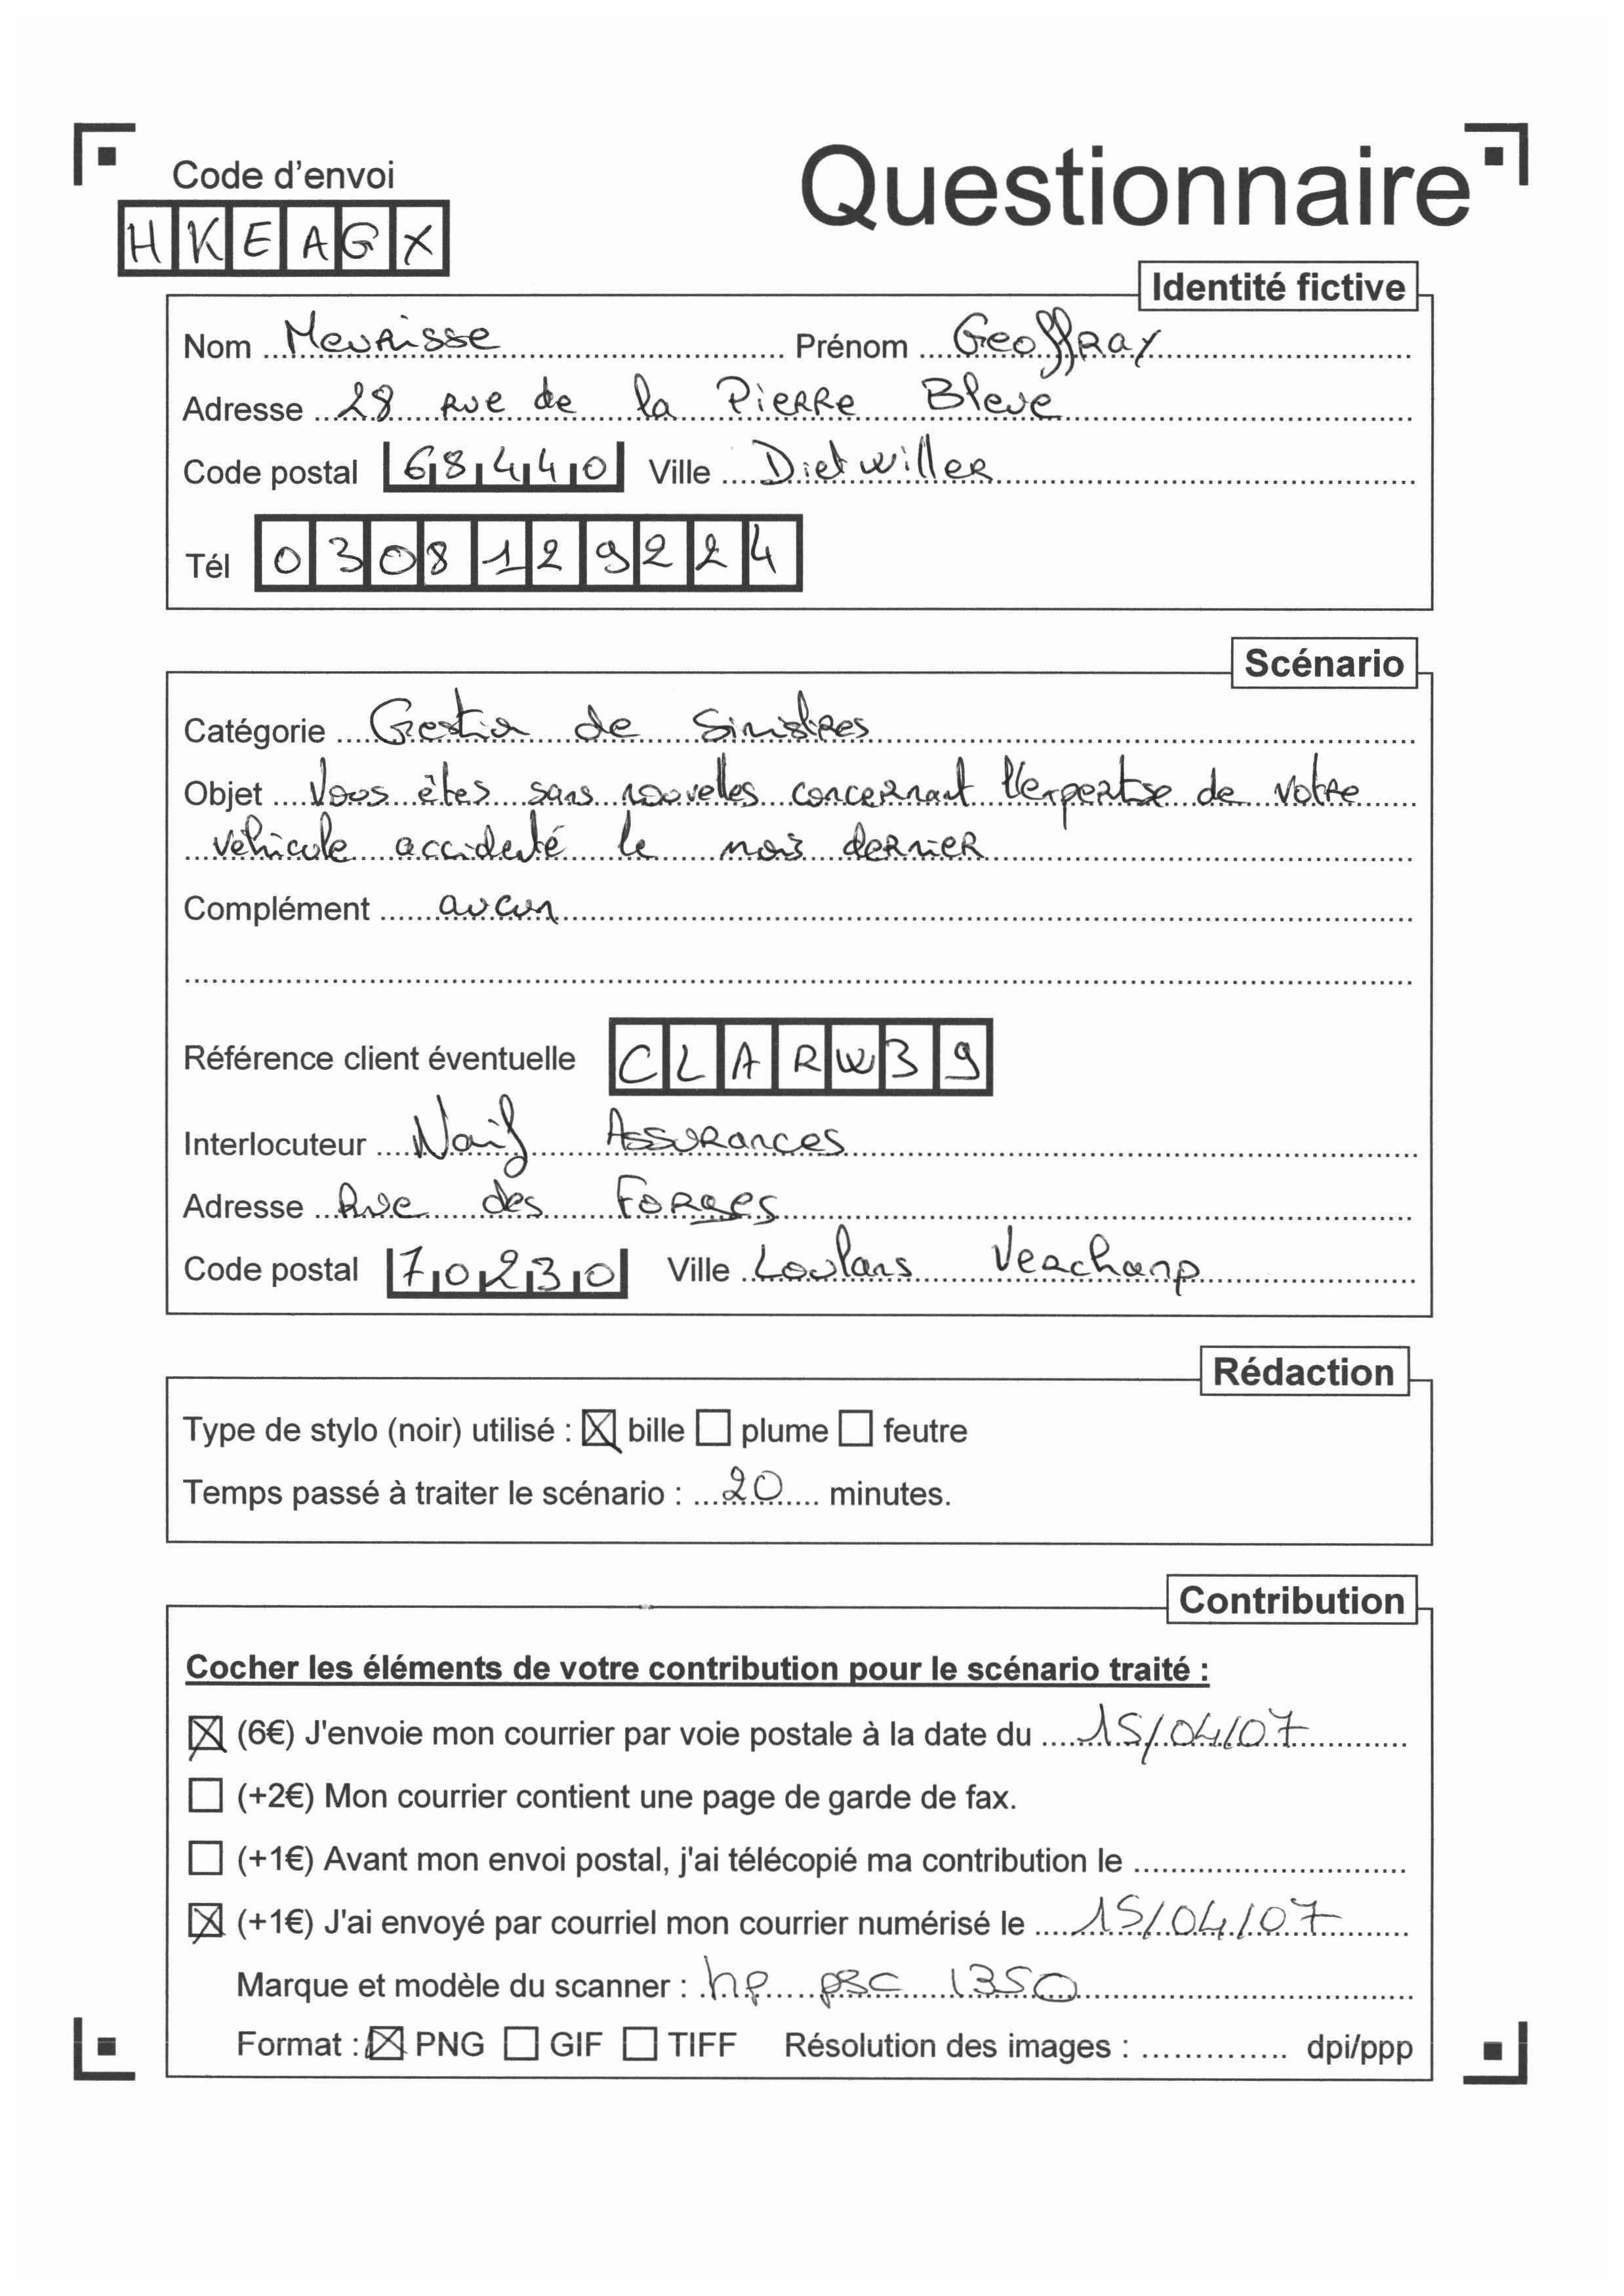 Code d'envoi
Questionnaire
HKEAGX
Identité fictive
Nom Meurisse Prénom Geoffray
Adresse 28 rue de la Pierre Bleue
Code postal 68440 Ville Dietwiller
Tél 0308129224
Scénario
Catégorie Gestion de Sinistres
Objet Vous êtes sans nouvelles concernant l'expertise de votre
véhicule accidenté le mois dernier
Complément aucun
Référence client éventuelle CLARW39
Interlocuteur Naif Assurances
Adresse Rue des Forges
Code postal 70230 Ville Loulans Verchamp
Rédaction
Type de stylo (noir) utilisé : ☒ bille ☐ plume ☐ feutre
Temps passé à traiter le scénario : 20 minutes.
Contribution
Cocher les éléments de votre contribution pour le scénario traité :
☒ (6€) J'envoie mon courrier par voie postale à la date du 15/04/07
☐ (+2€) Mon courrier contient une page de garde de fax.
☐ (+1€) Avant mon envoi postal, j'ai télécopié ma contribution le
☒ (+1€) J'ai envoyé par courriel mon courrier numérisé le 15/04/07
Marque et modèle du scanner : hp psc 1350
Format : ☒ PNG ☐ GIF ☐ TIFF Résolution des images : dpi/ppp